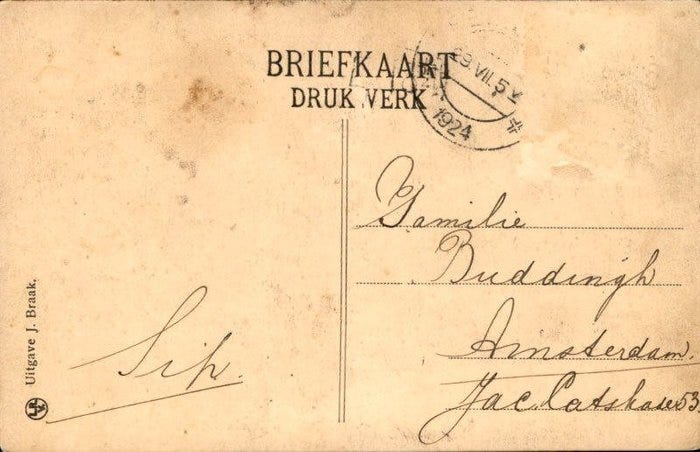 BRIEFKAART
DRUKWERK
29.VII.5
1924
Familie
Buddingh
Amsterdam.
Jac. Catskade 53
Uitgave J. Braak.